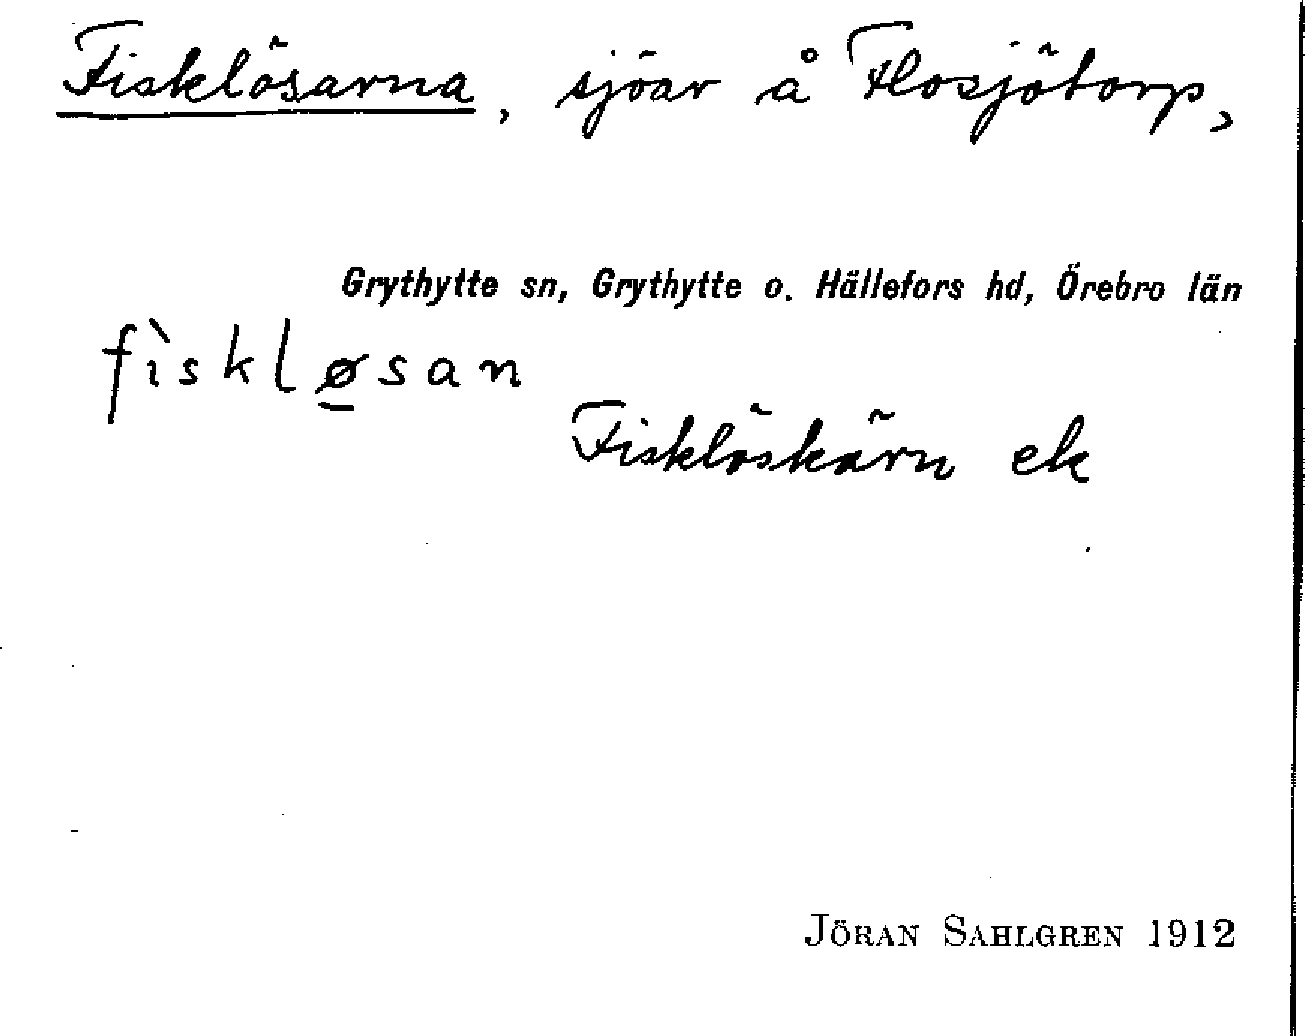 Fisklösarna, sjöar å Flosjötorp,
Grythytte sn, Grythytte o. Hällefors hd, Örebro län
fìskløsan
Fisklöskärn ek
JÖRAN SAHLGREN 1912